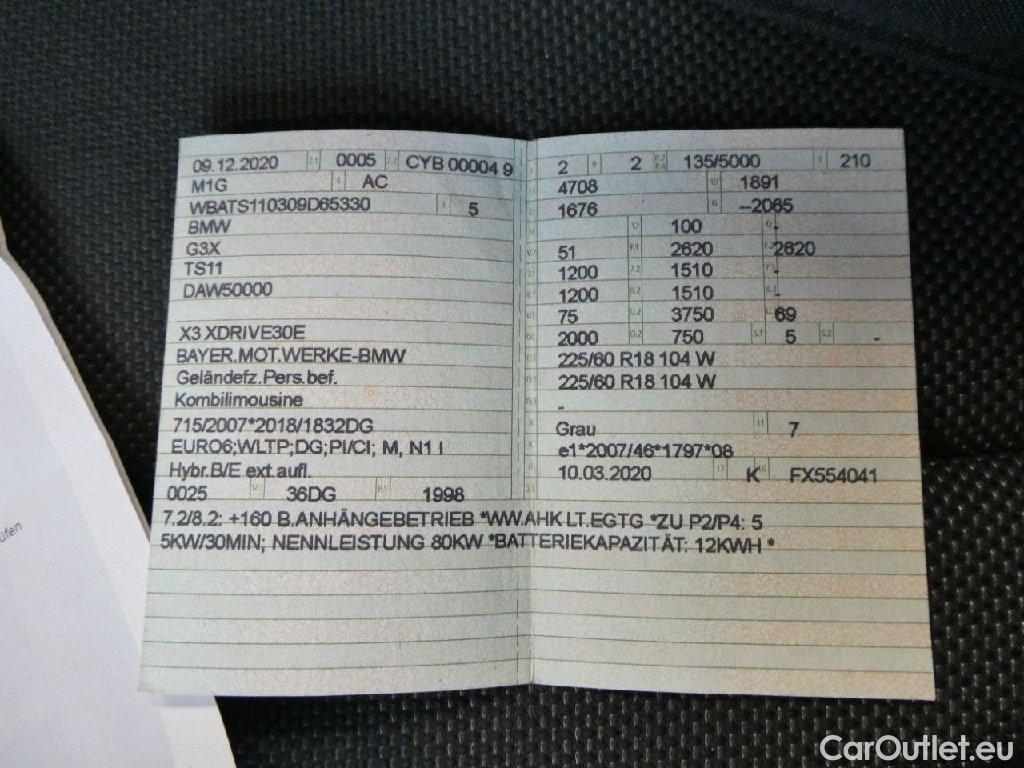 09.12.2020 2.1 0005 2.2 CYB 00004 9
M1G AC
WBATS110309D65330 3 5
BMW
G3X
TS11
DAW50000
X3 XDRIVE30E
BAYER.MOT.WERKE-BMW
Geländefz.Pers.bef.
Kombilimousine
715/2007*2018/1832DG
EURO6;WLTP;DG;PI/CI; M, N1 I
Hybr.B/E ext.aufl.
0025 36DG 1998
2 9 2 P.2 P.4 135/5000 T 210
4708 1891
1676 --2065
100 -
51 2620 2620
1200 7.2 1510 -
1200 8.2 1510 -
75 U.2 3750 69
2000 O.2 750 S.1 5 S.2 -
225/60 R18 104 W
225/60 R18 104 W
-
Grau 11 7
e1*2007/46*1797*08
10.03.2020 17 K 16 FX554041
7.2/8.2: +160 B.ANHÄNGEBETRIEB *WW.AHK LT.EGTG *ZU P2/P4: 5
5KW/30MIN; NENNLEISTUNG 80KW *BATTERIEKAPAZITÄT: 12KWH *
üfen
CarOutlet.eu